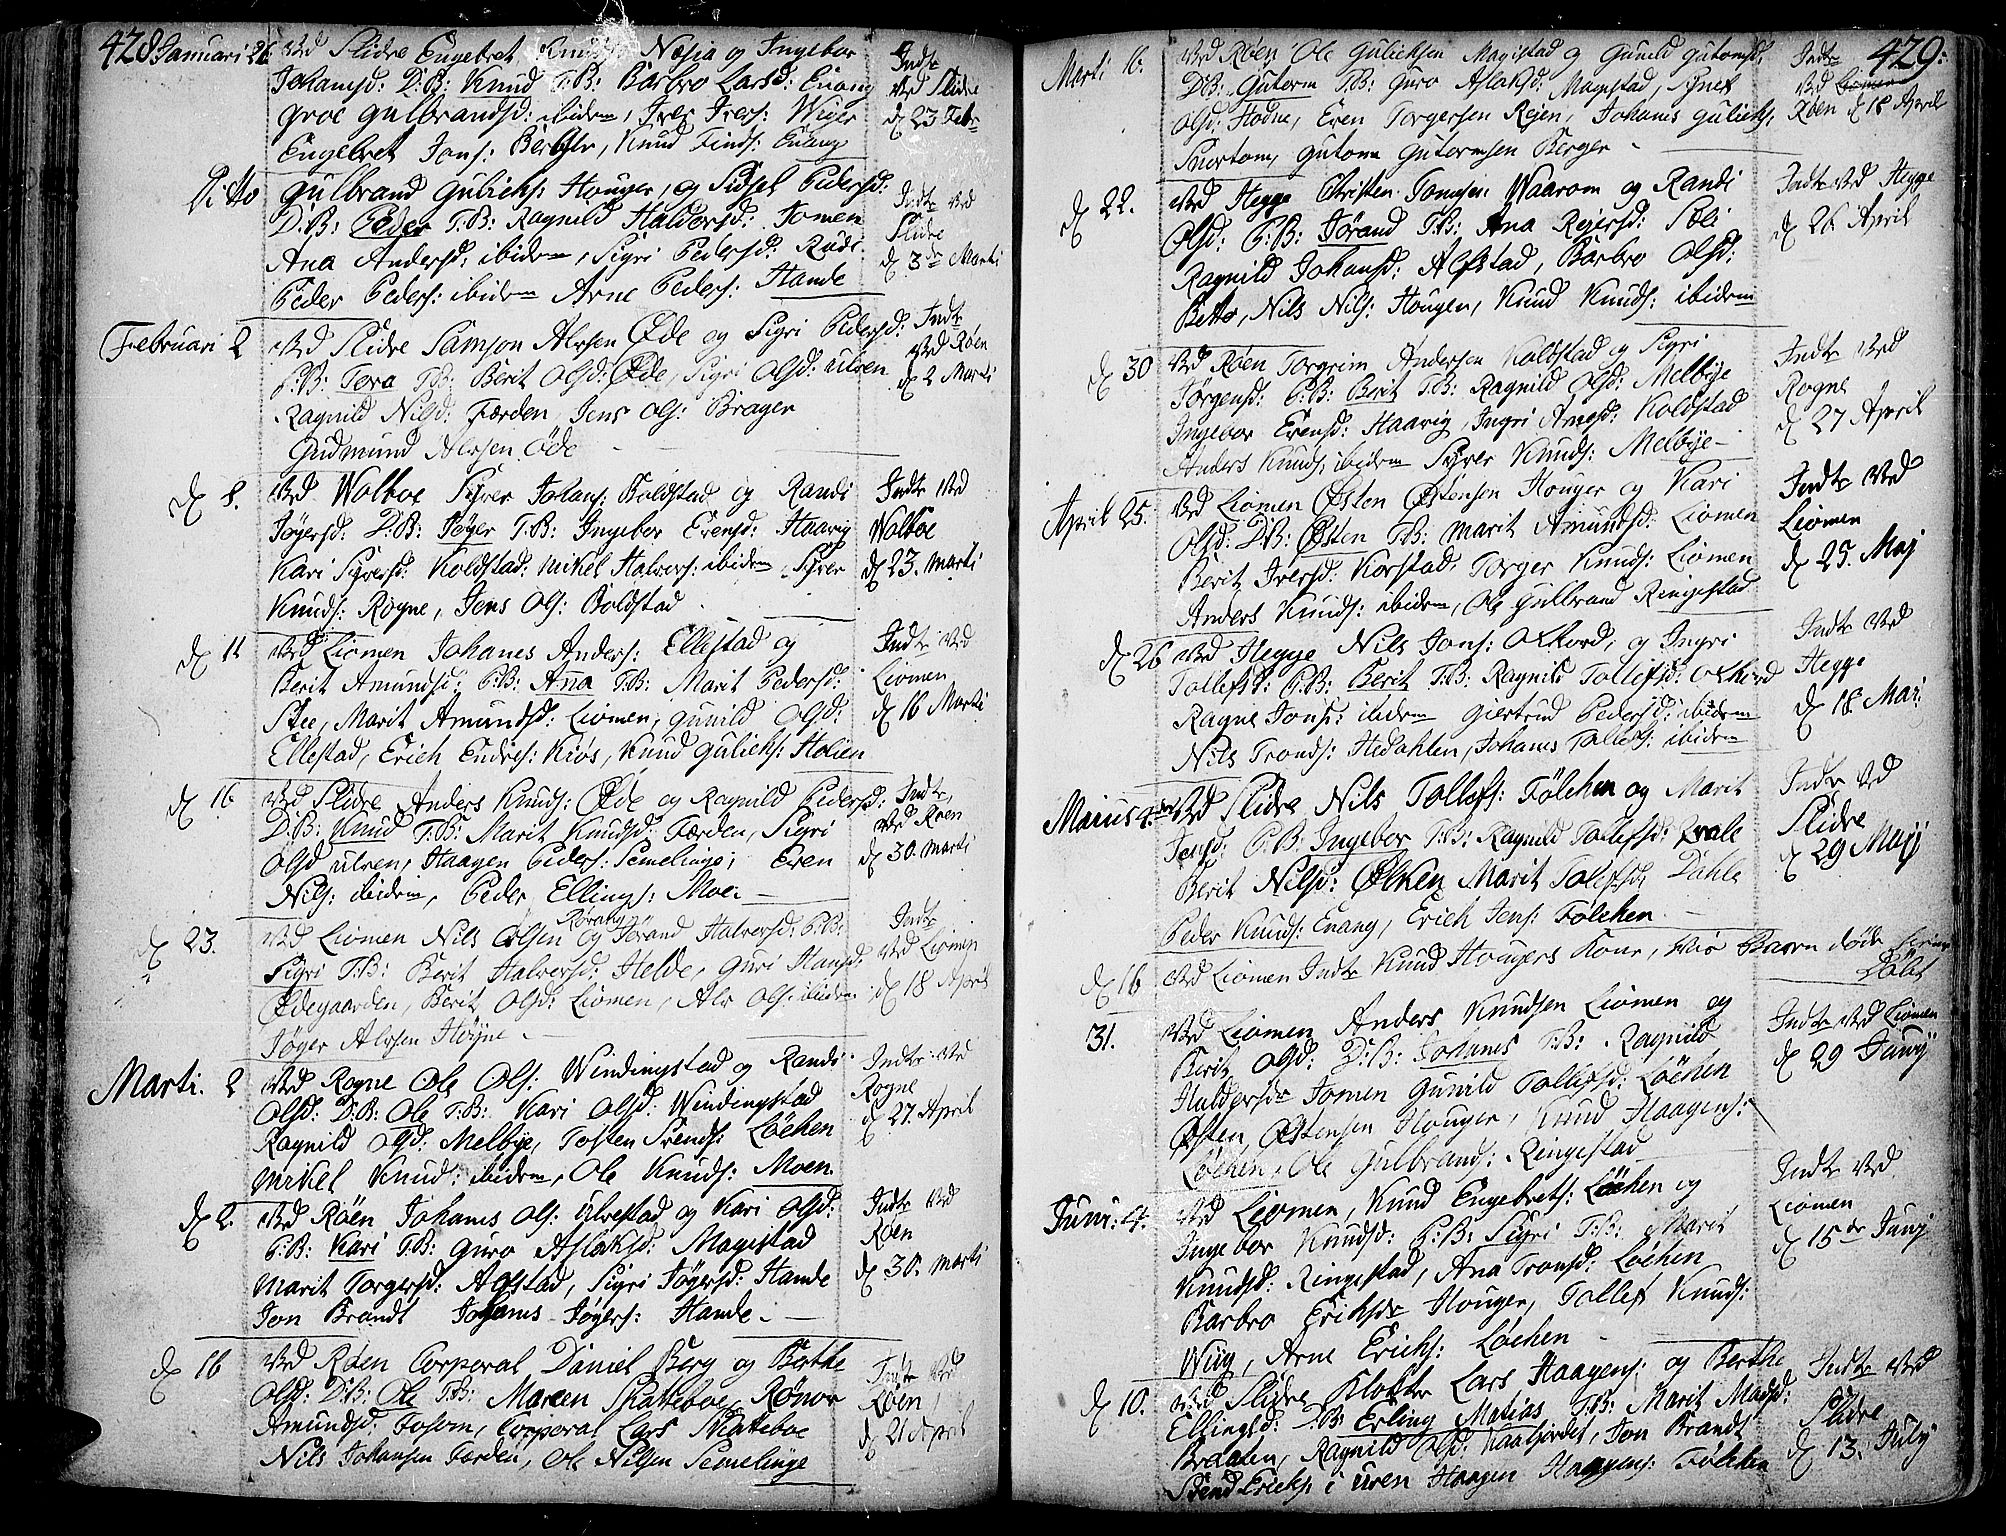 428 Januari 26 Ved Slidre Engebret Knuds: Næsia og Ingebor
Johansd: D:B: Knud T:B: Barbro Larsd: Euang
groe gulbrandsd: ibidem, Iver Ivers: Wiger
Engebret Jons: Berger, Knud Finds: Euang
Indtr
Ved Slidre
d 23 Febr
Ditto gulbrand gulichs: Houger, og Sidsel Pedersd:
D:B: Peder T:B: Ragnild Haldorsd: Jomen
Ana Andersd: ibidem, Sigri Pedersd: Rudi
Peder Peders: ibidem Arne Peders: Hande
Indtr Ved
Slidre
d 3de Marti
Februari 2 Ved Slidre Samson Alvsen Øde og Sigri Pedersd:
P:B: Tora T:B: Berit Olsd: Øde, Sigri Olsd: ulven
Ragnild Nilsd: Færden Jens Ols: Brager
Gudmund Alvsen Øde
Indtr
Ved Røen
d 2 Marti
d 8. Ved Wolboe Syver Johans: Boldstad og Randi
Jøgersd: D:B: Jøger T:B: Ingebor Evensd: Haavig
Kari Syversd: Koldstad, Mikel Halvors: ibidem Syver
Knuds: Rogne, Jens Ols: Boldstad
Indtr Ved
Wolboe
d 23. Marti
d 11 Ved Liomen Johanes Anders: Ellestad og
Berit Amundsd: P:B: Ana T:B: Marit Pedersd:
Stee, Marit Amundsd: Liomen, gunild Olsd:
Ellestad, Erich Endres: Kiøs, Knud gulichs: Holien
Indtr Ved
Liomen
d 16 Marti
d 16 Ved Slidre Anders Knuds: Øde og Ragnild Pedersd:
D:B: Knud T:B: Marit Knudsd: Færden, Sigri
Olsd ulven, Haagen Peders: Semelinge, Even
Nils: ibidem, Peder Ellings: Moe
Indtr
Ved Røen
d 30. Marti
d 23. Ved Liomen Nils Olsen Rørang og Jorand Halvorsd: P:B:
Sigri T:B: Berit Halvorsd: Helde, Guri Hansd:
Ødegaarden, Berit Olsd: Liomen, Alv Ols: ibidem
Jøger Alvsen Høyne
Indtr
Ved Liomen
d 18 April
Marti. 2 Ved Rogne Ole Ols: Windingstad og Randi
Olsd: D:B: Ole T:B: Kari Olsd: Windingstad
Ragnild Olsd: Melbye, Tosten Svends: Løchen
Mikel Knuds: ibidem, Ole Knuds: Moen
Indtr Ved
Rogne
d 27. April
d 2. Ved Røen Johanes Ols: Ulvestad og Kari Olsd:
P:B: Kari T:B: Guro Aslaksd: Magistad
Marit Torgersd: Alfstad, Sigri Jøgersd: Hande
Jon Brandt Johanes Jøgers: Hande
Indtr Ved
Røen
d 30. Marti
d 16 Ved Røen Corporal Daniel Berg og Berthe
Olsd: D:B: Ole T:B: Maren Skatteboe, Rønov
Amundsd: Fosem, Corporal Lars Skateboe
Nils Johansen Færden, Ole Nilsen Semelinge
Indtr Ved
Røen
d 21 April
429:
Marti 16. Ved Røen Ole Gulichsen Magistad og Gunild Gutormsd:
D:B: Gutorm T:B: Guro Aslaksd: Magistad, Synet
Olsd: Hodne, Even Torgersen Rejen, Johanes Gulichs:
Snortom, Gutorm Gutormsen Berger
Indtr
Ved
Røen d 18 April
d 22. Ved Hegge Christen Tomesen Waarom og Randi
Olsd: P:B: Jorand T:B: Ana Rejersd: Soli
Ragnild Johansd: Alfstad, Barbro Olsd:
Betto, Nils Nils: Hougen, Knud Knuds: ibidem
Indtr Ved Hegge
d 26 April
d 30 Ved Røen Torgrim Andersen Koldstad og Sigri
Jørgensd: P:B: Berit T:B: Ragnild Olsd: Melbye
Ingebor Evensd: Haavig, Ingri Arnesd: Koldstad
Anders Knuds: ibidem Syver Knuds: Melbye
Indtr Ved
Rogne
d 27 April
April 25. Ved Liomen Østen Østensen Houger og Kari
Olsd: D:B: Østen T:B: Marit Amundsd: Liomen
Berit Iversd: Korstad, Torger Knuds: Liomen
Anders Knuds: ibidem, Ole Gulbrand Ringestad
Indtr Ved
Liomen
d 25. Maj
d 26 Ved Hegge Nils Jons: Olkiord, og Ingri
Tollefsd: P:B: Berit T:B: Ragnild Tollefsd: Olkiord
Ragne Jonsd: ibidem Giertrud Pedersd: ibidem
Nils Tronds: Hedahlen, Johanes Tollefs: ibidem
Indtr Ved
Hegge
d 18 Mai
Maius 4de Ved Slidre Nils Tollefs: Følchen og Marit
Jensd: P:B: Ingebor T:B: Ragnild Tollefsd: Qvale
Berit Nilsd: Ølken Marit Tolefsd: Dahle
Peder Knuds: Euang, Erich Jens: Følchen
Indtr Ved
Slidre
d 29 Maji
d 16 Ved Liomen Indtr Knud Hougers Kone, hvis Barn døde
Døbt
31. Ved Liomen Anders Knudsen Liomen og
Berit Olsd: D:B: Johanes T:B: Ragnild
Haldorsdr Jomen Gunild Tollefsd: Løchen
Østen Østensen Houger, Knud Haagens:
Løchen, Ole Gulbrands: Ringestad
Indtr Ved Liomen
d 29 Junij
Juni: 4. Ved Liomen, Knud Engebrets: Løchen og
Ingebor Knudsd: P:B: Sigri T:B: Marit
Knudsd: Ringestad, Ana Tronsd: Løchen
Barbro Erichsdr Houger, Tollef Knuds:
Wiig, Arne Erichs: Løchen
Indtr Ved
Liomen
d 15de Junij
d 10. Ved Slidre Klokker Lars Haagens: og Berthe
Ellingsd: D:B: Erling Matias T:B: Marit Madsd:
Braaten, Ragnild Olsd: Kaafjordet, Jon Brandt
Svend Erichs: i Uren Haagen Haagens: Følchen
Indtr Ved
Slidre
d 13. Julij